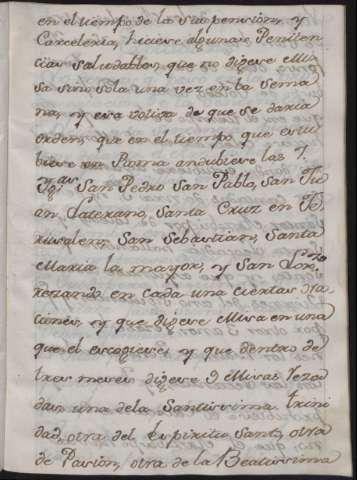 en el tiempo de la suspension, y
Carceleria, hiciese algunas Peniten
cias saludables, que no dijese Mi
sa sino sola una vez en la Sema
na, y era voliza de que se daria
orden, que en el tiempo que estu
biese en Roma andubiese las 7.
Ygas San Pedro San Pablo, San Ju
an Laterano, Santa Cruz en Je
rusalem, San Sebastian, Santa
Maria la mayor, y San Loren.zo
rezando en cada una ciertas Ora
ciones, y que dijese Misa en una
que el escogiese; y que dentro de
tres meses dijese 9 Misas reza
das, una dela Santissima trini
dad, otra del Espiritu Santo, otra
de Pasion, otra de la Beatissima